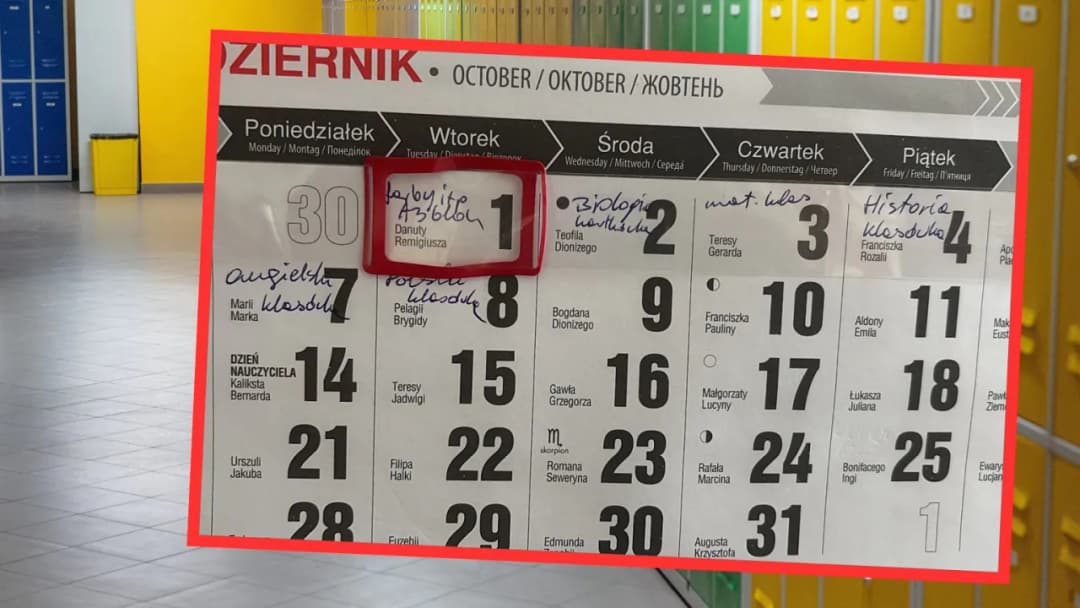 DZIERNIK • OCTOBER / OKTOBER / ЖОВТЕНЬ
Poniedziałek Wtorek Środa Czwartek Piątek
Monday / Montag / Понеділок Tuesday / Dienstag / Вівторок Wednesday / Mittwoch / Середа Thursday / Donnerstag / Четвер Friday / Freitag / П'ятниця
30
farby i
Danuty
Remigiusza
1
Biologia
kartkówka
Teofila
Dionizego
2
mat. klas
Teresy
Gerarda
3
Historia
klasówka
Franciszka
Rozalii
4
angielski
klasówka
Marii
Marka
7
Polski
klasówka
Pelagii
Brygidy
8
Bogdana
Dionizego
9
Franciszka
Pauliny
10
Aldony
Emila
11
DZIEŃ
NAUCZYCIELA
Kaliksta
Bernarda
14
Teresy
Jadwigi
15
Gawła
Grzegorza
16
Małgorzaty
Lucyny
17
Łukasza
Juliana
18
Urszuli
Jakuba
21
Filipa
Halki
22
skorpion
Romana
Seweryna
23
Rafała
Marcina
24
Bonifacego
Ingi
25
28
Euzebii
29
Edmunda
30
Augusta
Krzysztofa
31
1